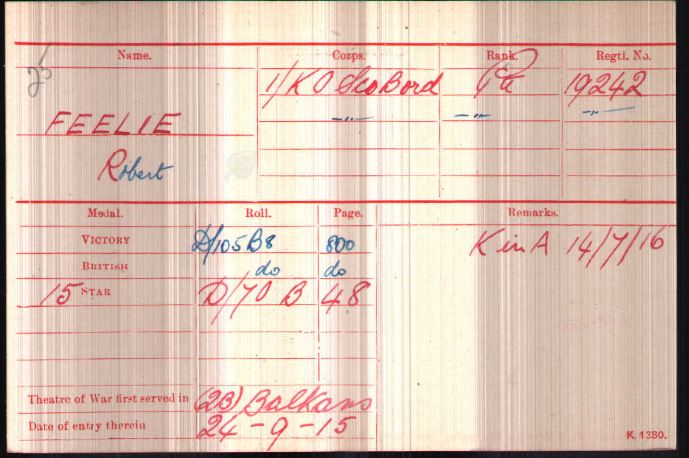 Name. Corps. Rank. Regtl. No.
25
1/K O Sco Bord Pte 19242
-"- -"- -"-
FEELIE
Robert
Medal. Roll. Page. Remarks.
VICTORY D/105B8 800 K in A 14/7/16
BRITISH do do
15 STAR D/70 B 48
Theatre of War first served in (2B) Balkans
Date of entry therein 24-9-15
K 1380.